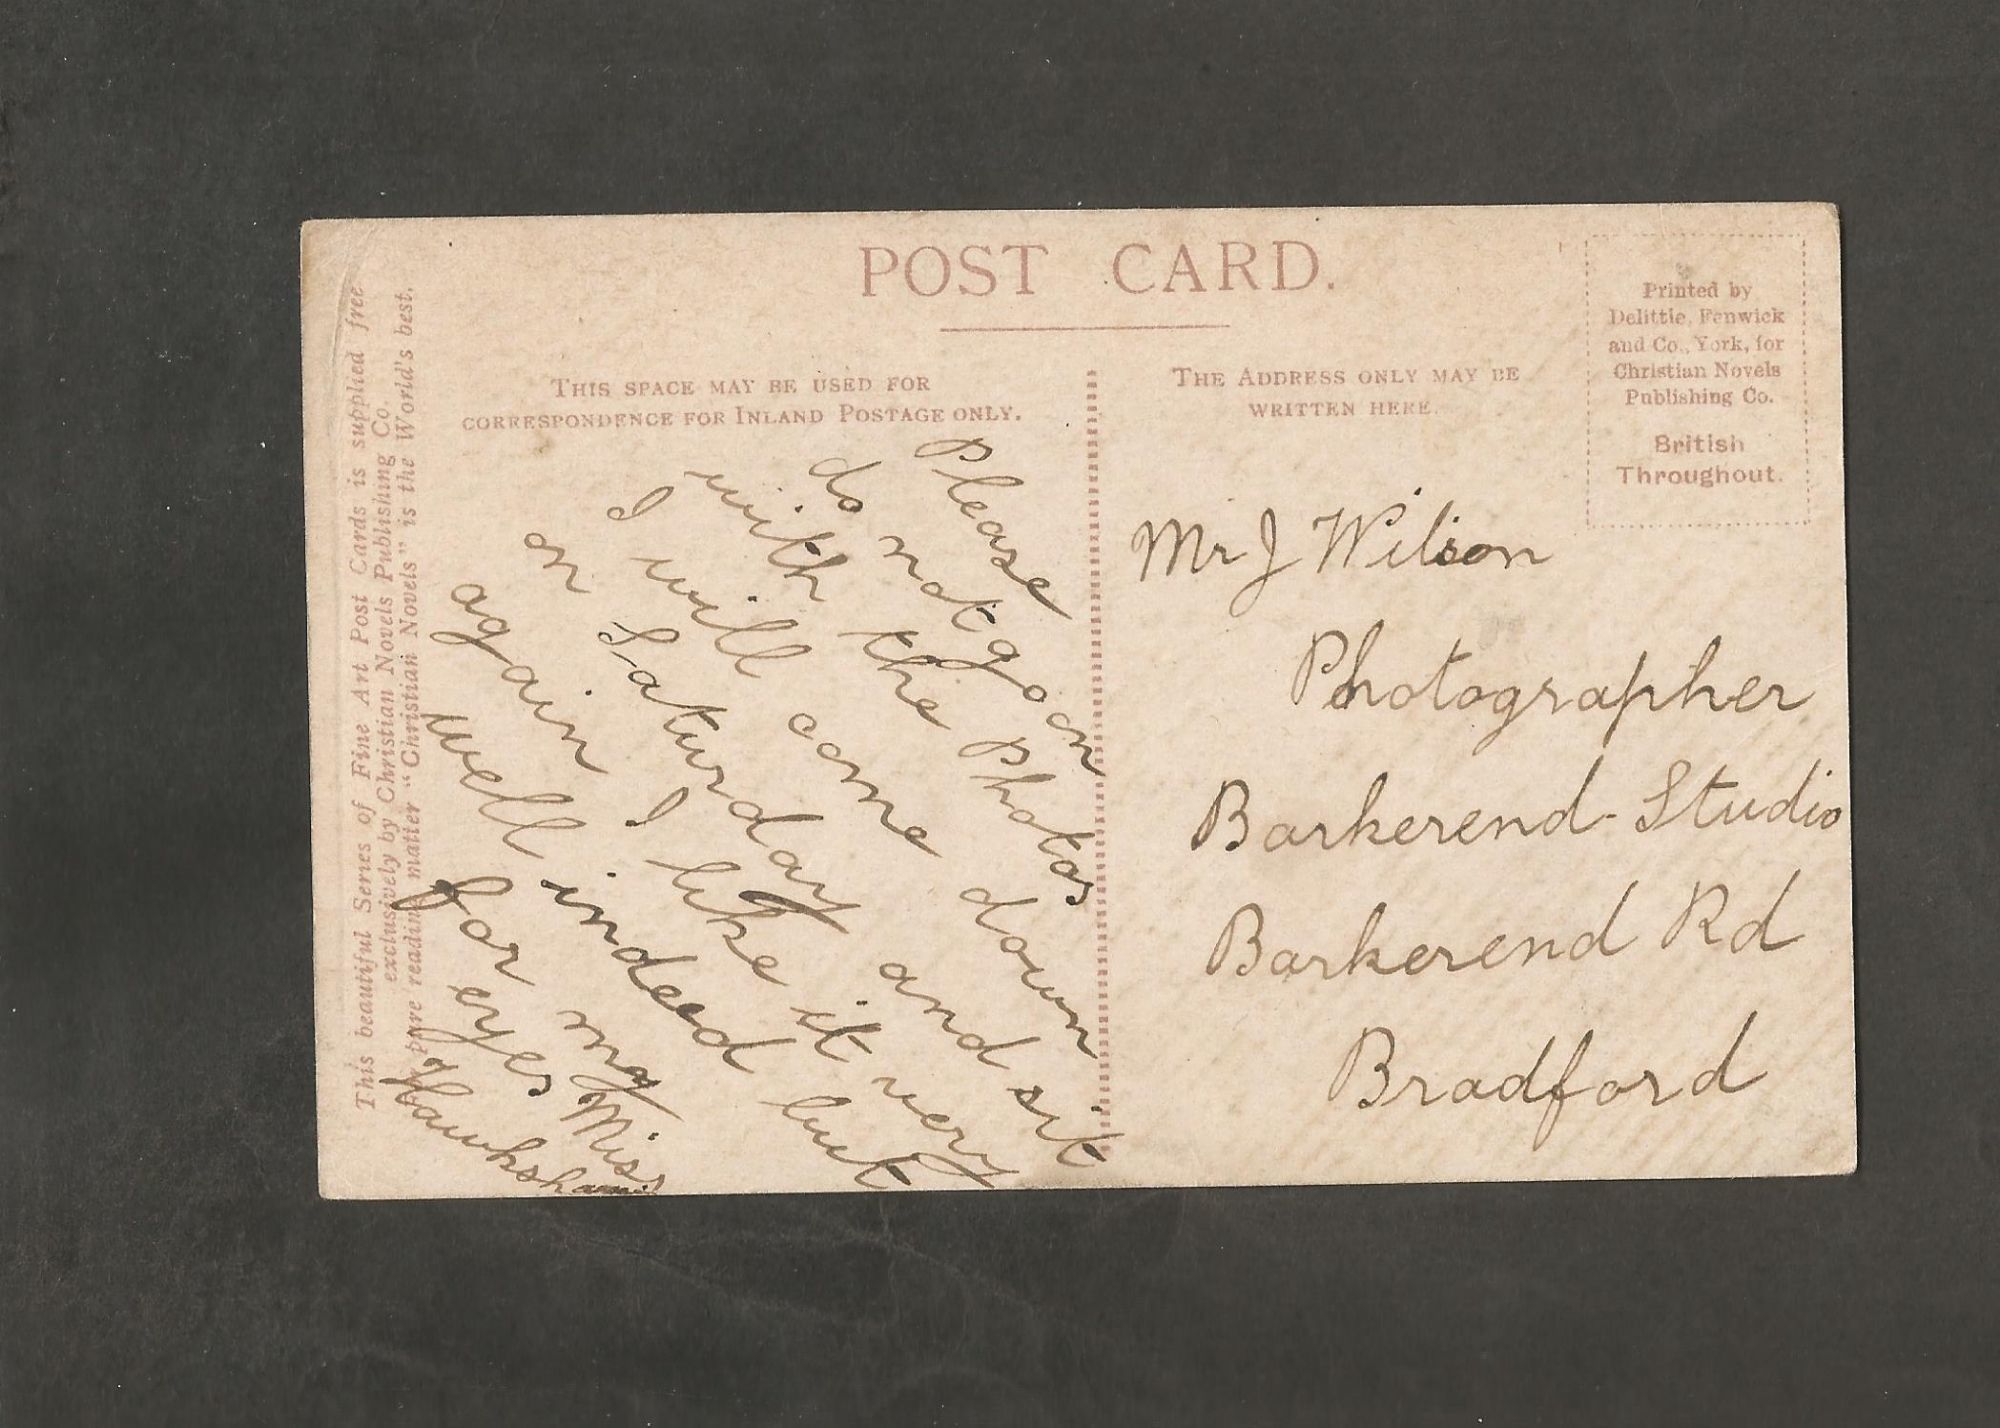 POST CARD.
THIS SPACE MAY BE USED FOR
CORRESPONDENCE FOR INLAND POSTAGE ONLY.
THE ADDRESS ONLY MAY BE
WRITTEN HERE.
Printed by
Delittle, Fenwick
and Co., York, for
Christian Novels
Publishing Co.
British
Throughout.
This beautiful Series of Fine Art Post Cards is supplied free
exclusively by Christian Novels Publishing Co.
pure reading matter "Christian Novels" is the World's best.
Please
do not go on
with the Photos
I will come down
on Saturday and sit
again I like it very
well indeed but
for my
eyes Miss
Hawkshaw
Mr J Wilson
Photographer
Barkerend-Studio
Barkerend Rd
Bradford